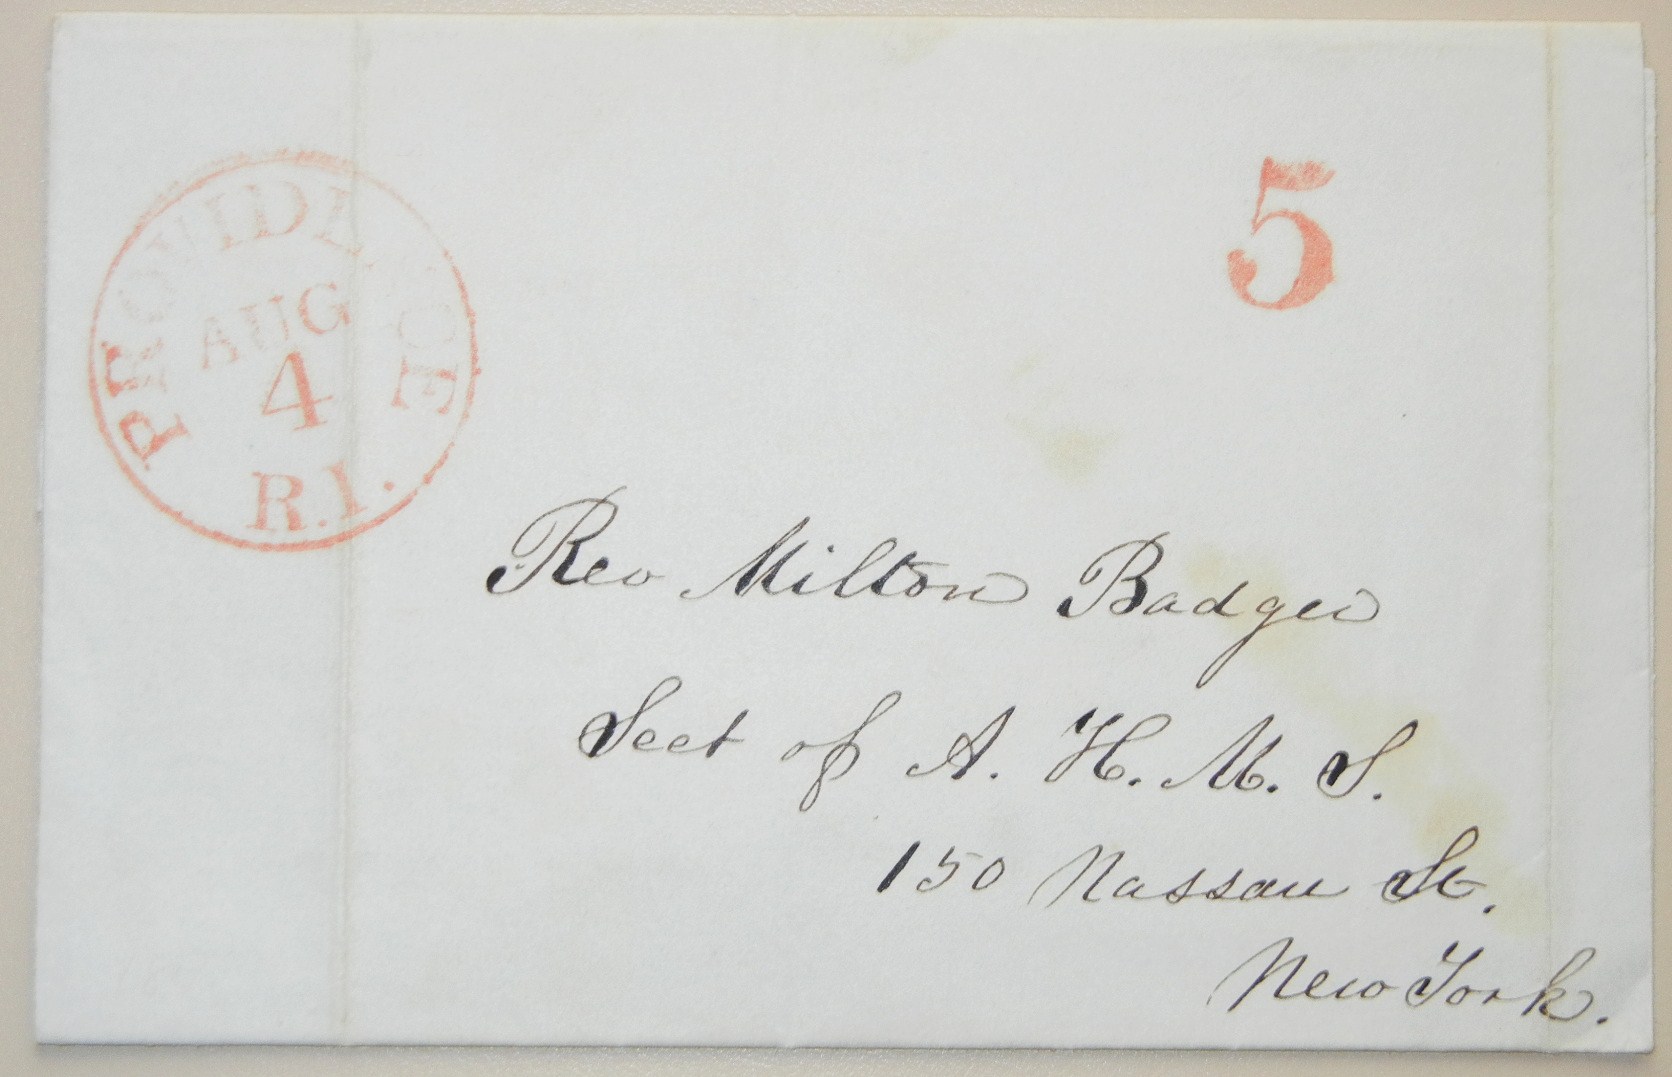 PROVIDENCE
AUG
4
R.I.
5
Rev Milton Badger
Sect of A. H. M. S.
150 Nassau St.
New York.